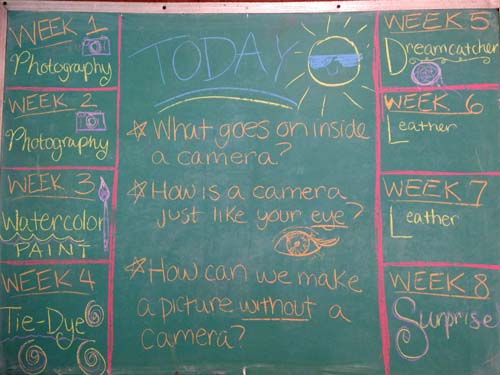 WEEK 1
Photography
WEEK 2
Photography
WEEK 3
Watercolor
PAINT
WEEK 4
Tie-Dye
TODAY
What goes on inside
a camera?
How is a camera
just like your eye?
How can we make
a picture without a
camera?
WEEK 5
Dreamcatcher
WEEK 6
Leather
WEEK 7
Leather
WEEK 8
Surprise